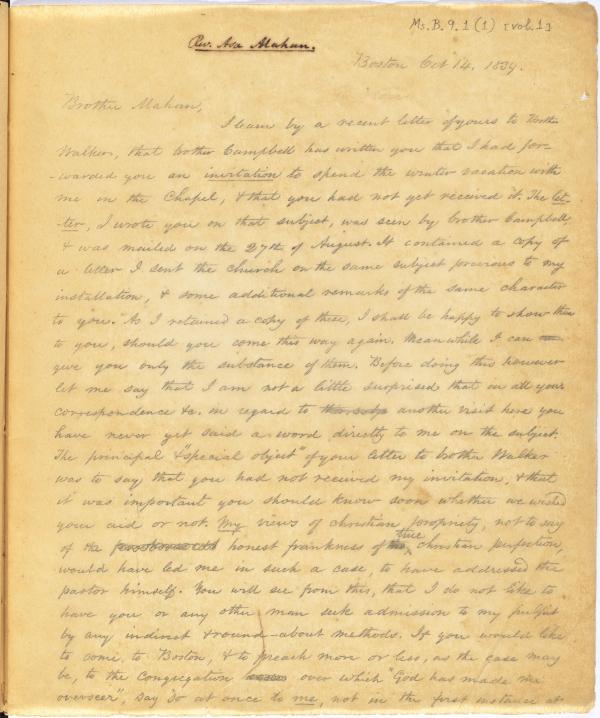 Ms. B. 9. 1 (1) [vol. 1]
Rev. Asa Mahan.
Boston Oct 14. 1839.
Brother Mahan,
I learn by a recent letter of yours to Brother
Walker, that brother Campbell has written you that I had for-
-warded you an invitation to spend the winter vacation with
me in the Chapel, & that you had not yet received it. The let-
-ter, I wrote you on that subject, was seen by brother Campbell,
& was mailed on the 27th of August. It contained a copy of
a letter I sent the church on the same subject previous to my
installation, & some additional remarks of the same character
to you. As I retained a copy of these, I shall be happy to show them
to you, should you come this way again. Meanwhile I can
give you only the substance of them. Before doing this however
let me say that I am not a little surprised that in all your
correspondence &c. in regard to another visit here you
have never yet said a word directly to me on the subject.
The principal & "special object" of your letter to brother Walker
was to say that you had not received my invitation, & that
it was important you should know soon whether we wished
your aid or not. My views of christian propriety, not to say
of the honest frankness of true christian perfection,
would have led me in such a case, to have addressed the
pastor himself. You will see from this, that I do not like to
have you or any other man seek admission to my pulpit
by any indirect & round-about methods. If you would like
to come to Boston, & to preach more or less, as the case may
be, to the Congregation over which "God has made me
overseer", say so at once to me, not in the first instance at